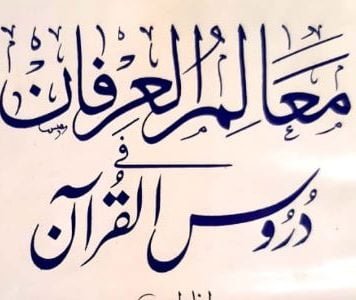 مَعَالِمُ الْعِرْفَان
فِي
دُرُوسِ الْقُرْآن